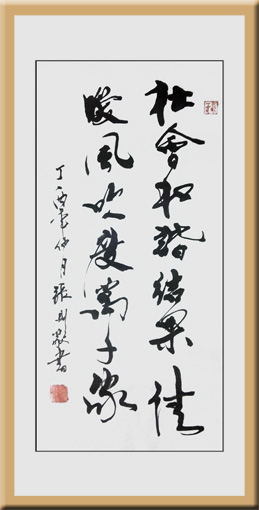 社會和諧結果佳
暖風吹度萬千家
丁酉年仲月張書